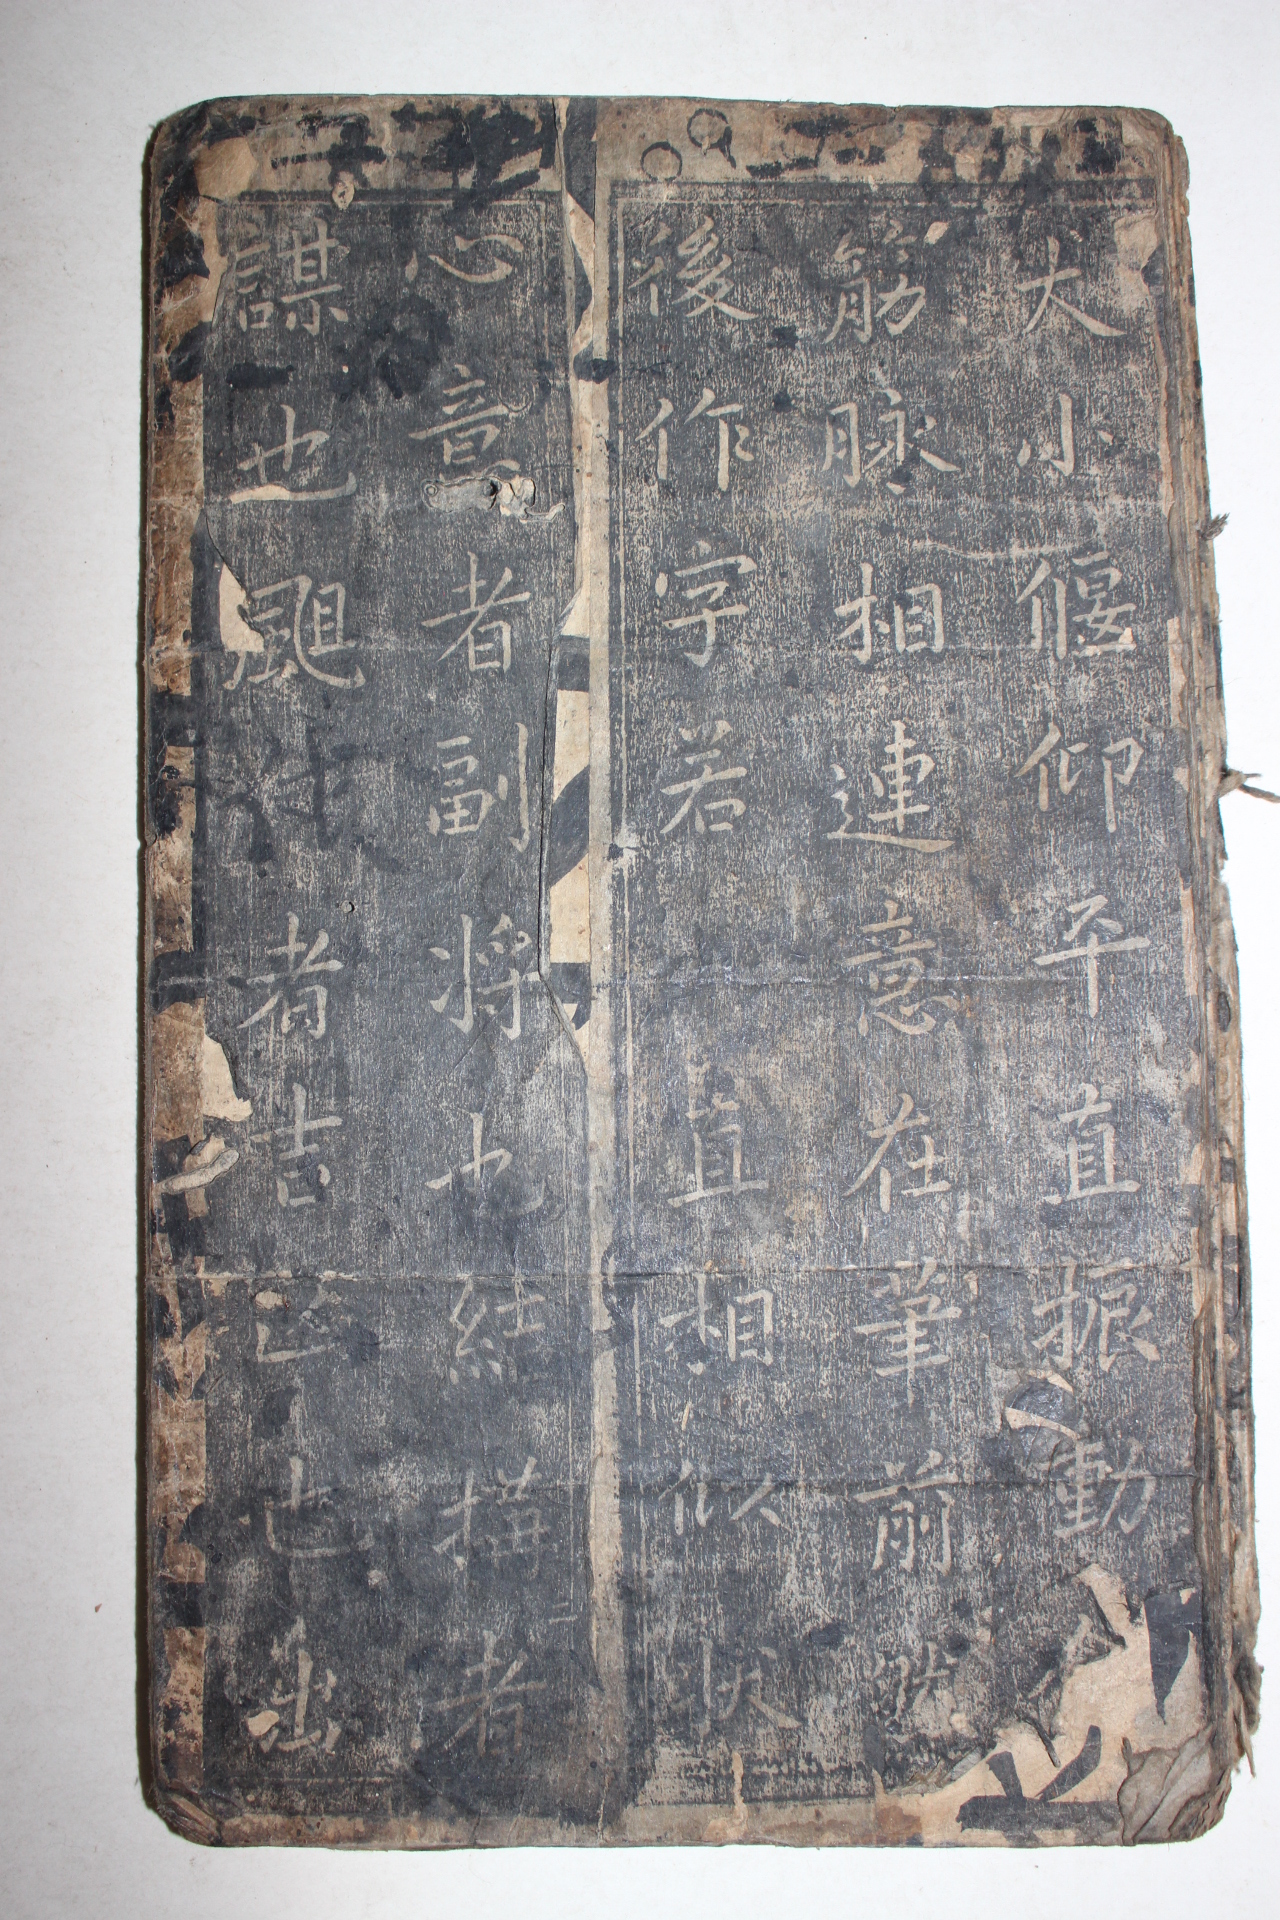 大小偃仰平直振動
筋脉相連意在筆前然
後作字若皆相似狀
心意者副将也結搆者
謀也颶筆者吉凶也出